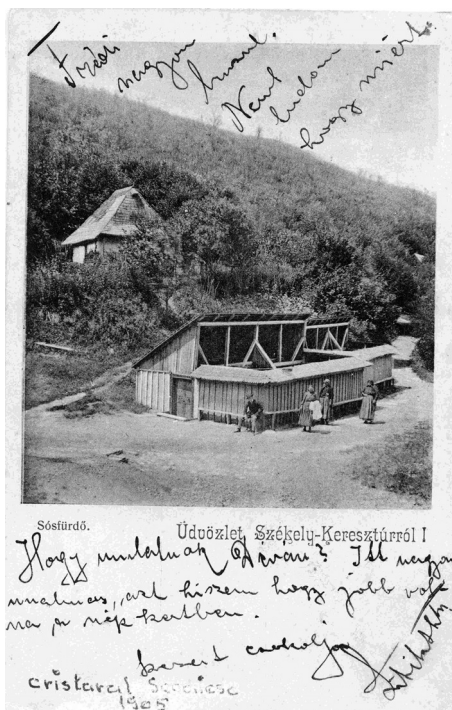 nagyon
Nem
tudom
hogy miért.
Sósfürdő.
Üdvözlet Székely-Keresztúrról!
Hogy mulatnak Díván? Itt nagyon
unalmas, azt hiszem hogy jobb vol
na a népkertben.
csókolja
cristarul
1905